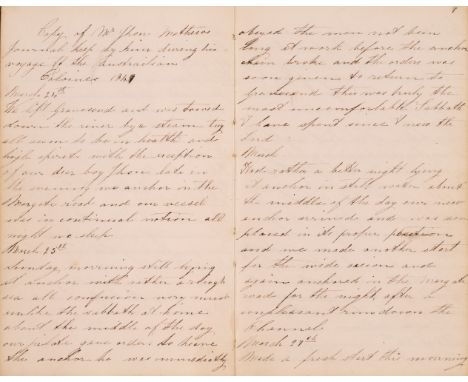 Copy of Mr Jhon Mathews
Journal keep by him during his
voyage to the Australian
Colonies 1849
March 24th
We left Gravesend and was towed
down the river by a steam tug
all seem to be in health and
high spirits with the exception
of our dear boy Jhon late in
the evening we anchor in the
Margate road and our vessel
was in continual motion all
night no sleep
March 25th
Sunday morning still lying
at anchor with rather a rough
sea all confusion very much
unlike the sabbath at home
about the middle of the day
our pilate gave orders to heave
the anchor he was immediately
9
obeyed the men not been
long at work before the anchor
chain broke and the orders was
soon given to return to
Gravesend this was truly the
most uncomfortable Sabbath
I have spent since I now the
Lord
March
Had rather a better night lying
at anchor in still water about
the middle of the day our new
anchor arrived and was soon
placed in its proper position
and we made another start
for the wide ocean and
again anchored in the Margate
road for the night after a
unpleasant run down the
Channel
March 27th
Made a fresh start this morning